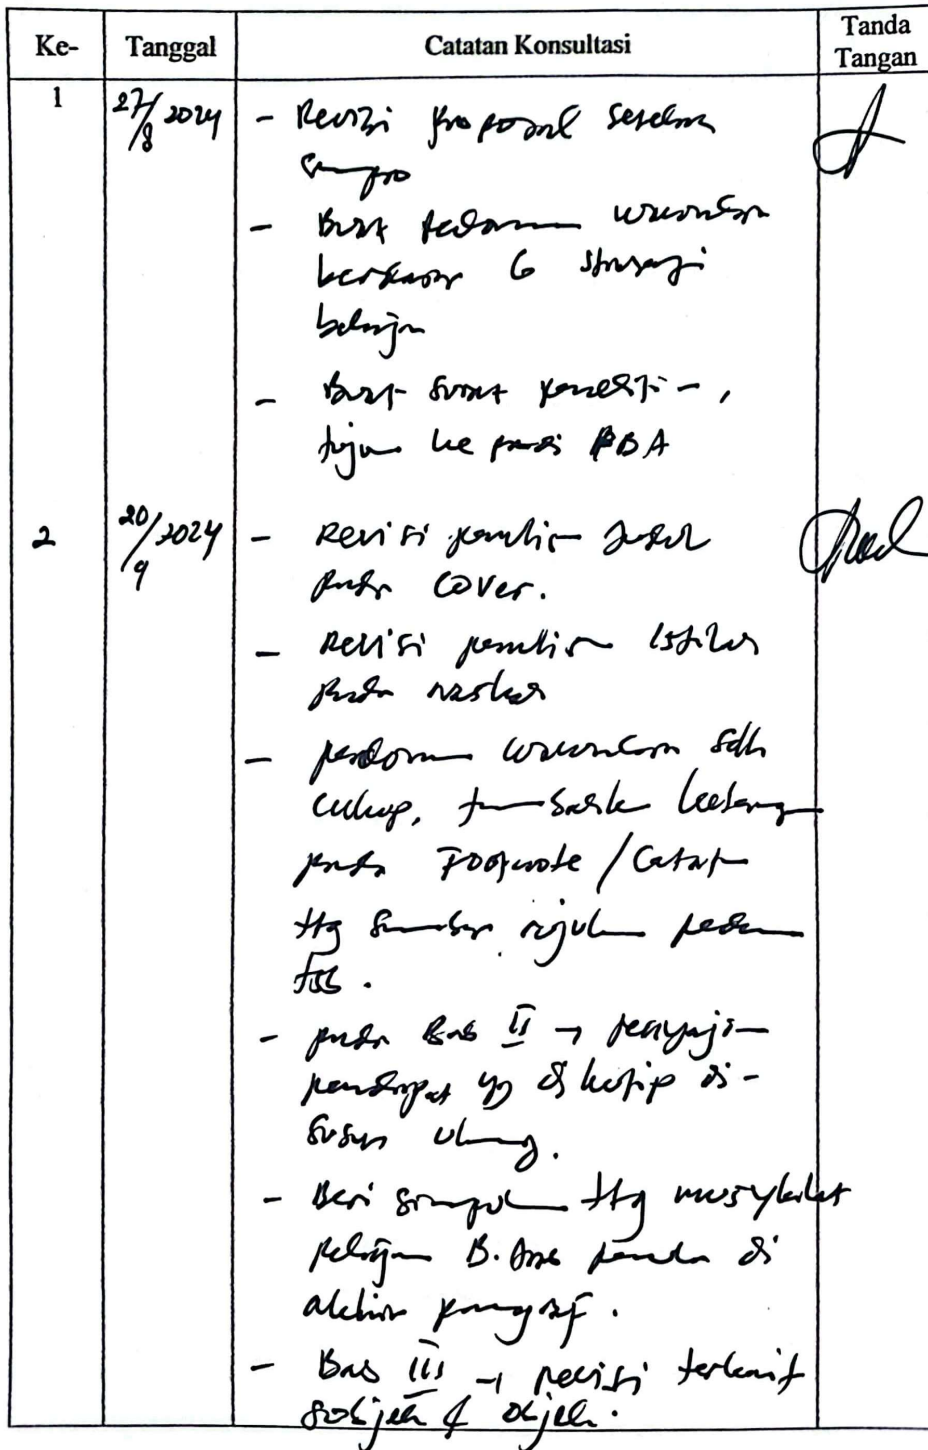 Ke-
Tanggal
Catatan Konsultasi
Tanda
Tangan
1
27/8 2024
- Revisi proposal setelah
sempro
- Buat pedoman wawancara
berdasar 6 strategi
belajar
- Buat surat penelitian,
tujuan ke prodi PBA
2
20/9 2024
- Revisi penulisan judul
pada cover.
- Revisi penulisan istilah
pada naskah
- pedoman wawancara sdh
cukup, tambahkan keterangan
pada Footnote / Catatan
ttg sumber rujukan pedoman
tsb.
- pada Bab II → penyajian
pendapat yg dikutip di-
susun ulang.
- Beri simpulan ttg musykilat
pelajaran B. Arab di
akhir paragraf.
- Bab III → revisi terkait
subjek & objek.